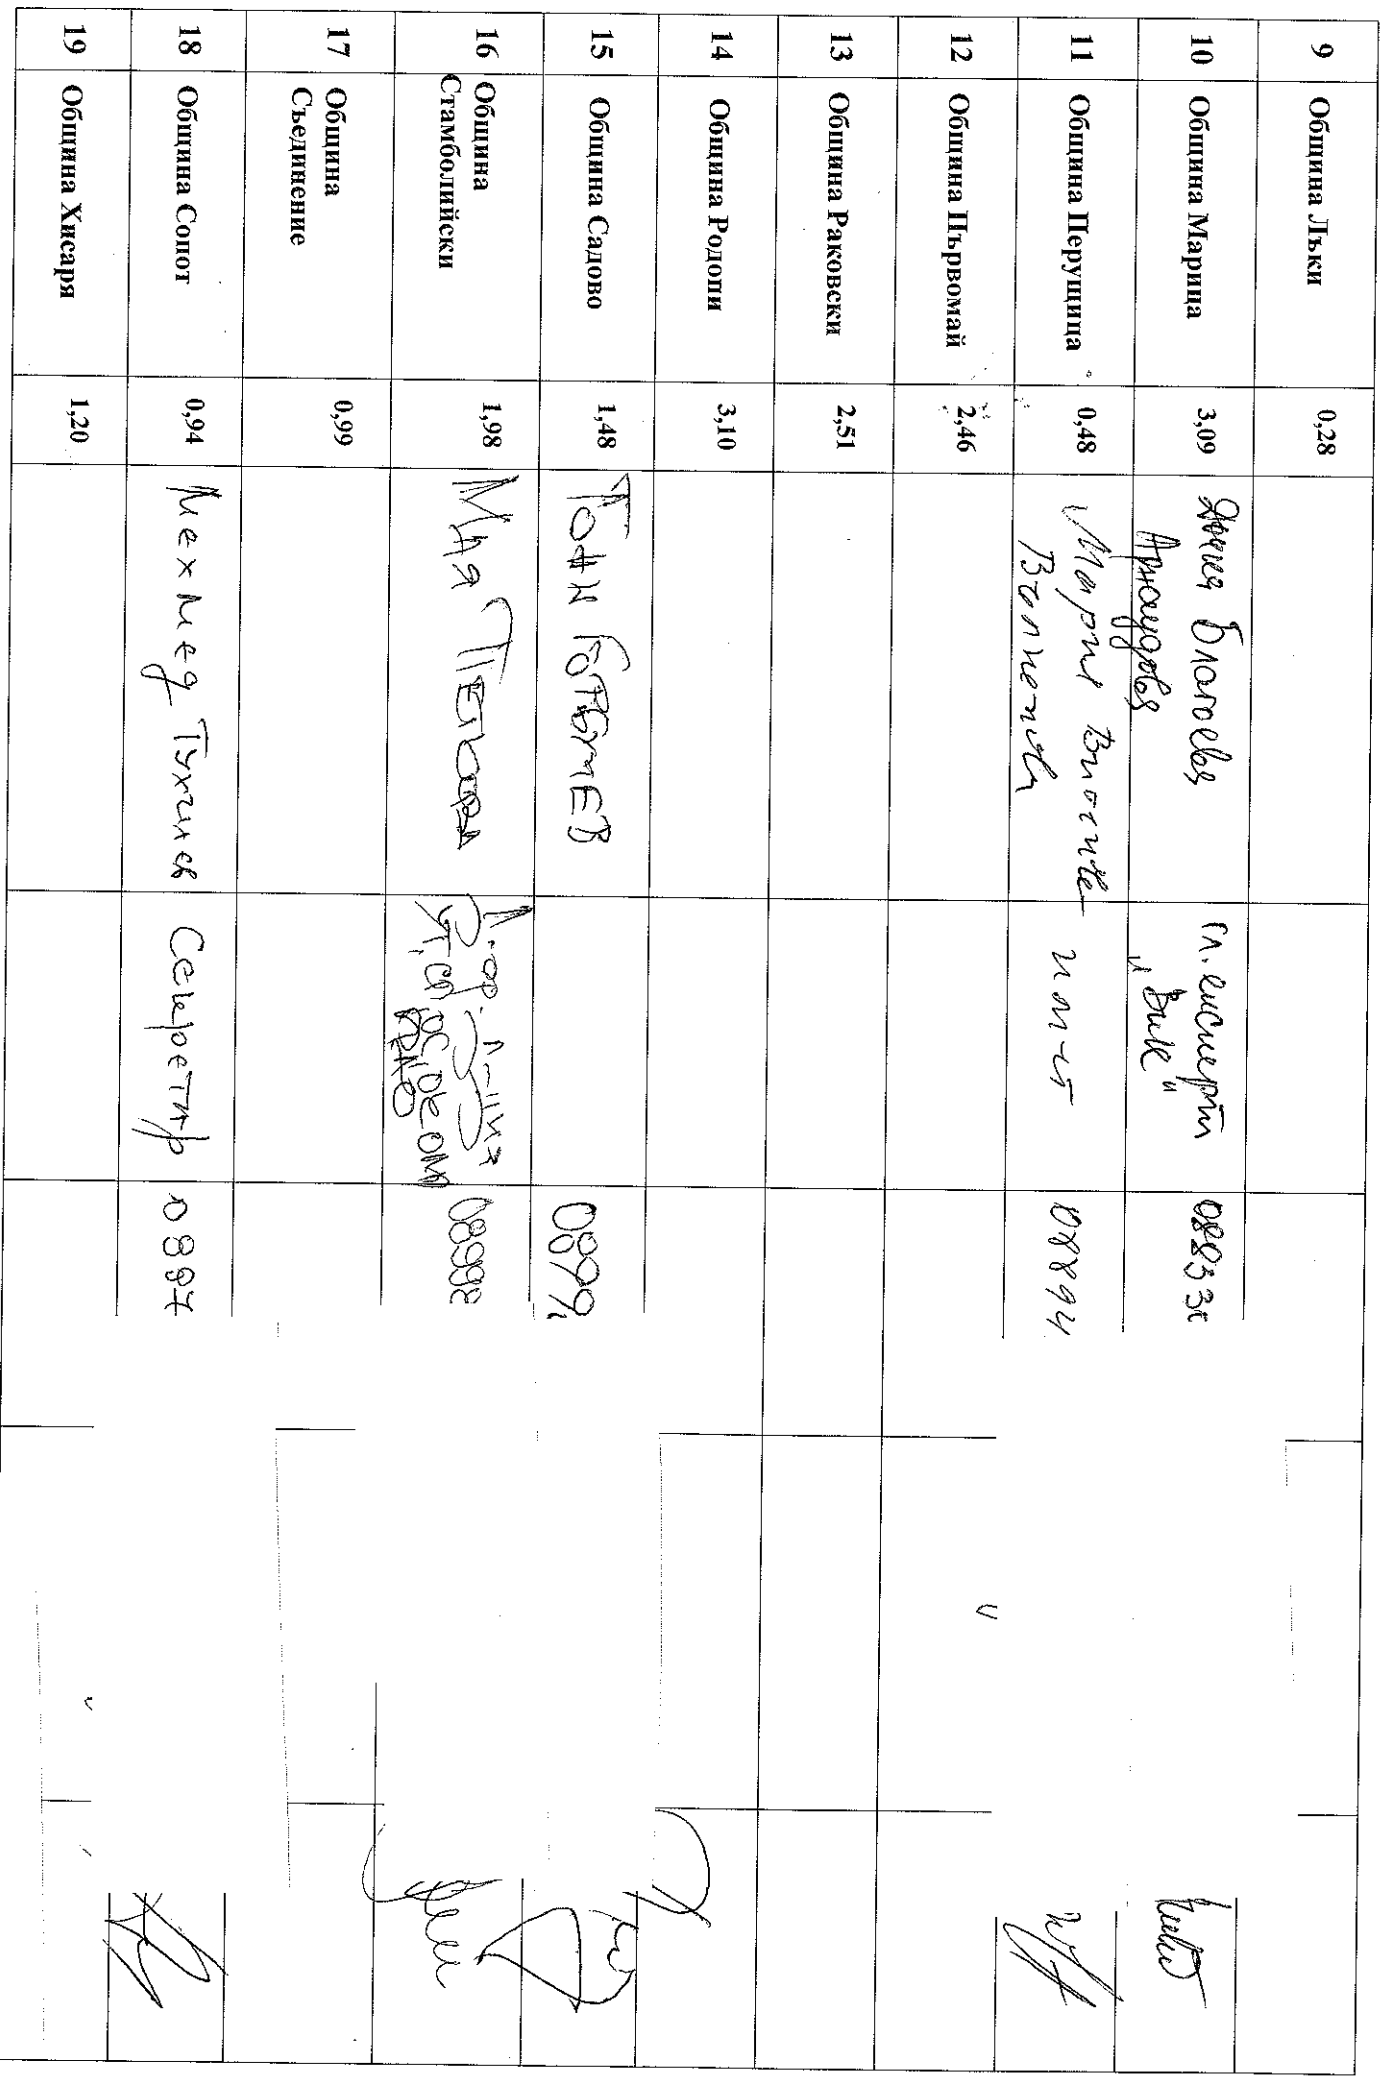 9 Община Лъки 0,28
10 Община Марица 3,09 Благоева гл. експерт 08833
Арнаудова „ВиК"
11 Община Перущица 0,48 Мария 08894
12 Община Първомай 2,46
13 Община Раковски 2,51
14 Община Родопи 3,10
15 Община Садово 1,48 0899
16 Община
Стамболийски 1,98 Мая Петкова 08998
17 Община
Съединение 0,99
18 Община Сопот 0,94 Мехмед Тухчиев Секретар 0897
19 Община Хисаря 1,20